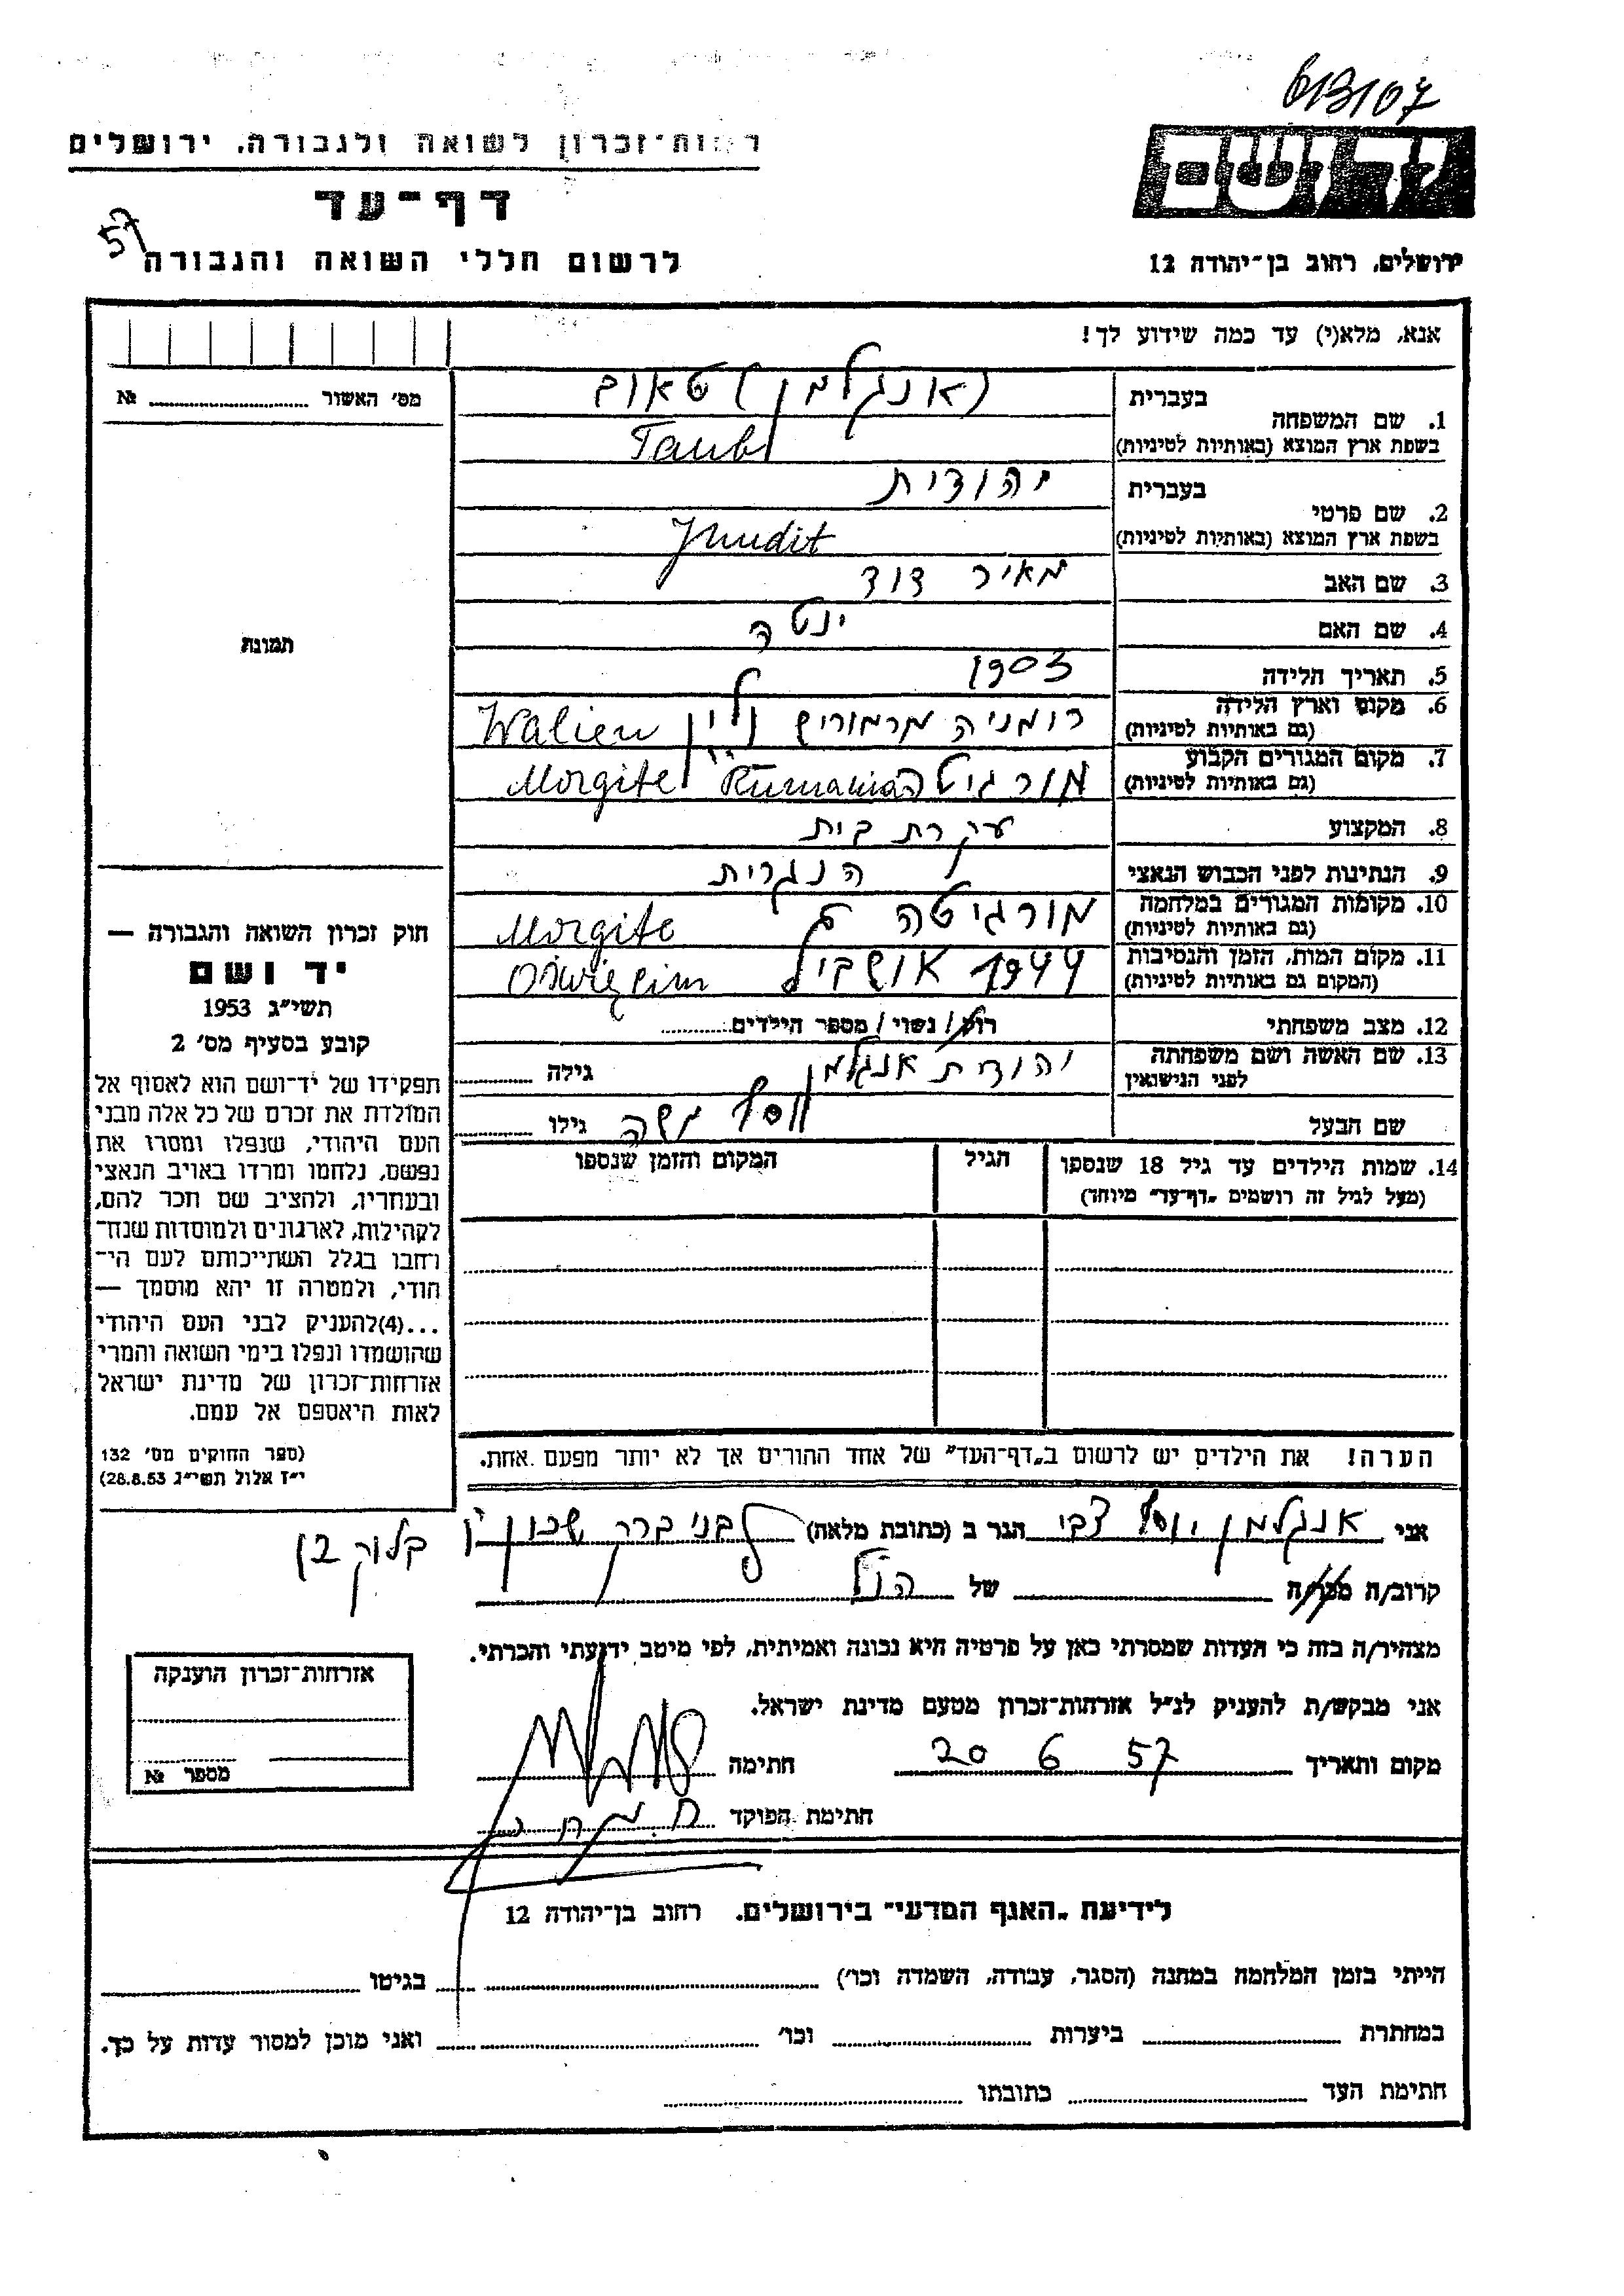 613107
רשות־זכרון לשואה ולגבורה, ירושלים
יד ושם
דף־עד
57
לרשום חללי השואה והגבורה
ירושלים, רחוב בן־יהודה 12
אנא, מלא(י) עד כמה שידוע לך!
מס׳ האשור № 
1. שם המשפחה
בעברית (אנגלמן) טאוב
בשפת ארץ המוצא (באותיות לטיניות) Taub
2. שם פרטי
בעברית יהודית
בשפת ארץ המוצא (באותיות לטיניות) Jhudit
3. שם האב מאיר דוד
4. שם האם ינטה
5. תאריך הלידה 1903
6. מקום וארץ הלידה
(גם באותיות לטיניות) רומניה מרמורש ולין Walien
Rumania
7. מקום המגורים הקבוע
(גם באותיות לטיניות) מורגיטה Morgite
8. המקצוע עקרת בית
9. הנתינות לפני הכבוש הנאצי הנגרית
10. מקומות המגורים במלחמה
(גם באותיות לטיניות) מורגיטה Morgite
11. מקום המות, הזמן והנסיבות
(המקום גם באותיות לטיניות) 1944
12. מצב משפחתי רוק/ נשוי/ מספר הילדים
13. שם האשה ושם משפחתה
לפני הנישואין יהודית אנגלמן גילה
שם הבעל יוסף משה גילו
14. שמות הילדים עד גיל 18 שנספו
(מעל לגיל זה רושמים „דף־עד״ מיוחד)
הגיל
המקום והזמן שנספו
תמונת
חוק זכרון השואה והגבורה —
יד ושם
תשי״ג 1953
קובע בסעיף מס׳ 2
תפקידו של יד־ושם הוא לאסוף אל
המולדת את זכרם של כל אלה מבני
העם היהודי, שנפלו ומסרו את
נפשם, נלחמו ומרדו באויב הנאצי
ובעחריו, ולהציב שם חכר להם,
לקהילות, לארגונים ולמוסדות שנח־
רחבו בגלל השתייכותם לעם הי־
הודי, ולמטרה זו יהא מוסמך —
...(4)להעניק לבני העם היהודי
שהושמדו ונפלו בימי השואה והמרי
אזרחות־זכרון של מדינת ישראל
לאות היאספם אל עמם.
(ספר החוקים מס׳ 132
י״ז אלול תשי״ג 28.8.53)
הערה! את הילדים יש לרשום ב„דף־העד״ של אחד ההורים אך לא יותר מפעם אחת.
אני אנגלמן יוסף צבי הגר ב (כתובת מלאה) בני ברק שכון
בלוק
קרוב/ה מכר/ה של הנ״ל
מצהיר/ה בזה כי העדות שמסרתי כאן על פרטיה היא נכונה ואמיתית, לפי מיטב ידיעתי והכרתי.
אני מבקש/ת להעניק לנ״ל אזרחות־זכרון מטעם מדינת ישראל.
מקום ותאריך 20 6 57 חתימה
חתימת הפוקד
אזרחות־זכרון הוענקה
מספר №
לידיעת „האגף המדעי״ בירושלים, רחוב בן־יהודה 12
הייתי בזמן המלחמה במחנה (הסגר, עבודה, השמדה וכו׳) בגיטו
במחתרת ביערות וכו׳ ואני מוכן למסור עדות על כך.
חתימת העד כתובתו